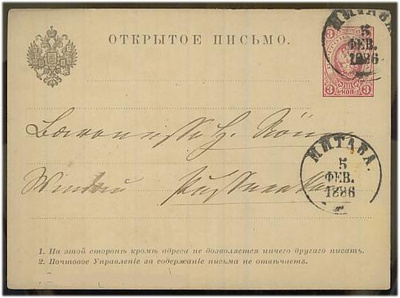 МИТАВА.
5
ФЕВ.
1886
ОТКРЫТОЕ ПИСЬМО.
3 3
КОП.
Baronesse
МИТАВА.
5
ФЕВ.
1886
1. На этой сторонѣ кромѣ адреса не дозволяется ничего другаго писать.
2. Почтовое Управленіе за содержаніе письма не отвѣчаетъ.